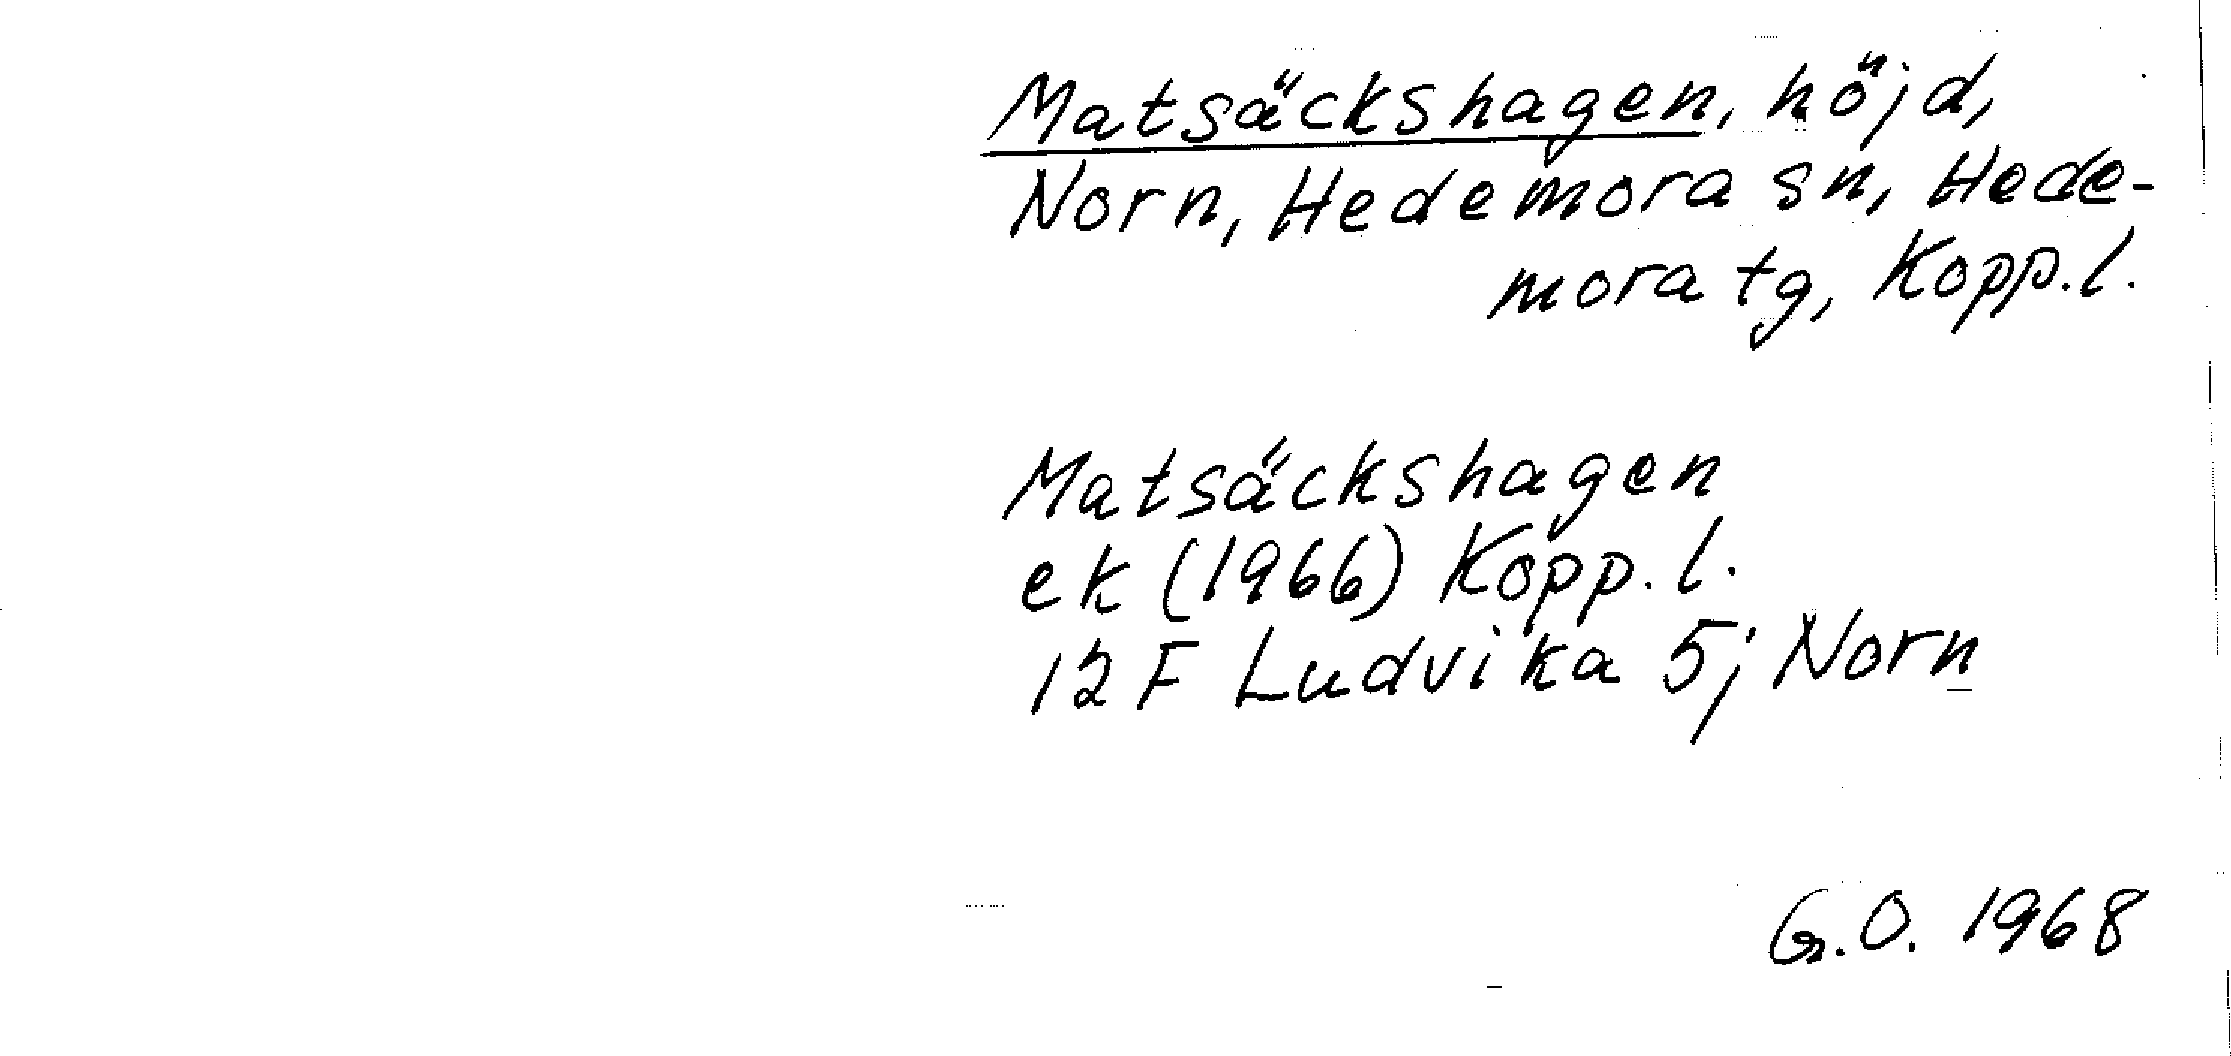 Matsäckshagen, höjd,
Norn, Hedemora sn, Hede-
mora tg, Kopp.l.
Matsäckshagen
ek (1966) Kopp. l.
12 F Ludvika 5j Norn
G.O. 1968